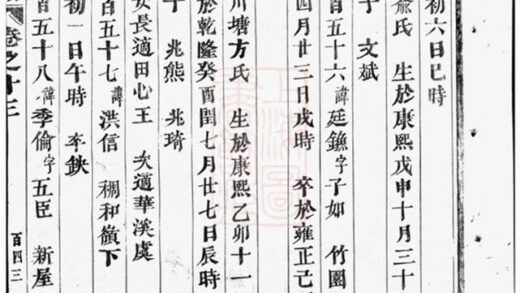 初六日巳時
氏 生於康熙戊申十月三十
子 文斌
百五十六 諱廷鐮字子如 竹園
四月廿三日戌時 卒於雍正己
川塘方氏 生於康熙乙卯十一
於乾隆癸酉閏七月廿七日辰時
子 兆熊 兆琦
安長適田心王 次適華溪虞
百五十七 諱洪信 棚和嶺下
初一日午時 卒缺
百五十八 諱季倫字五臣 新屋
卷之十三 百四三